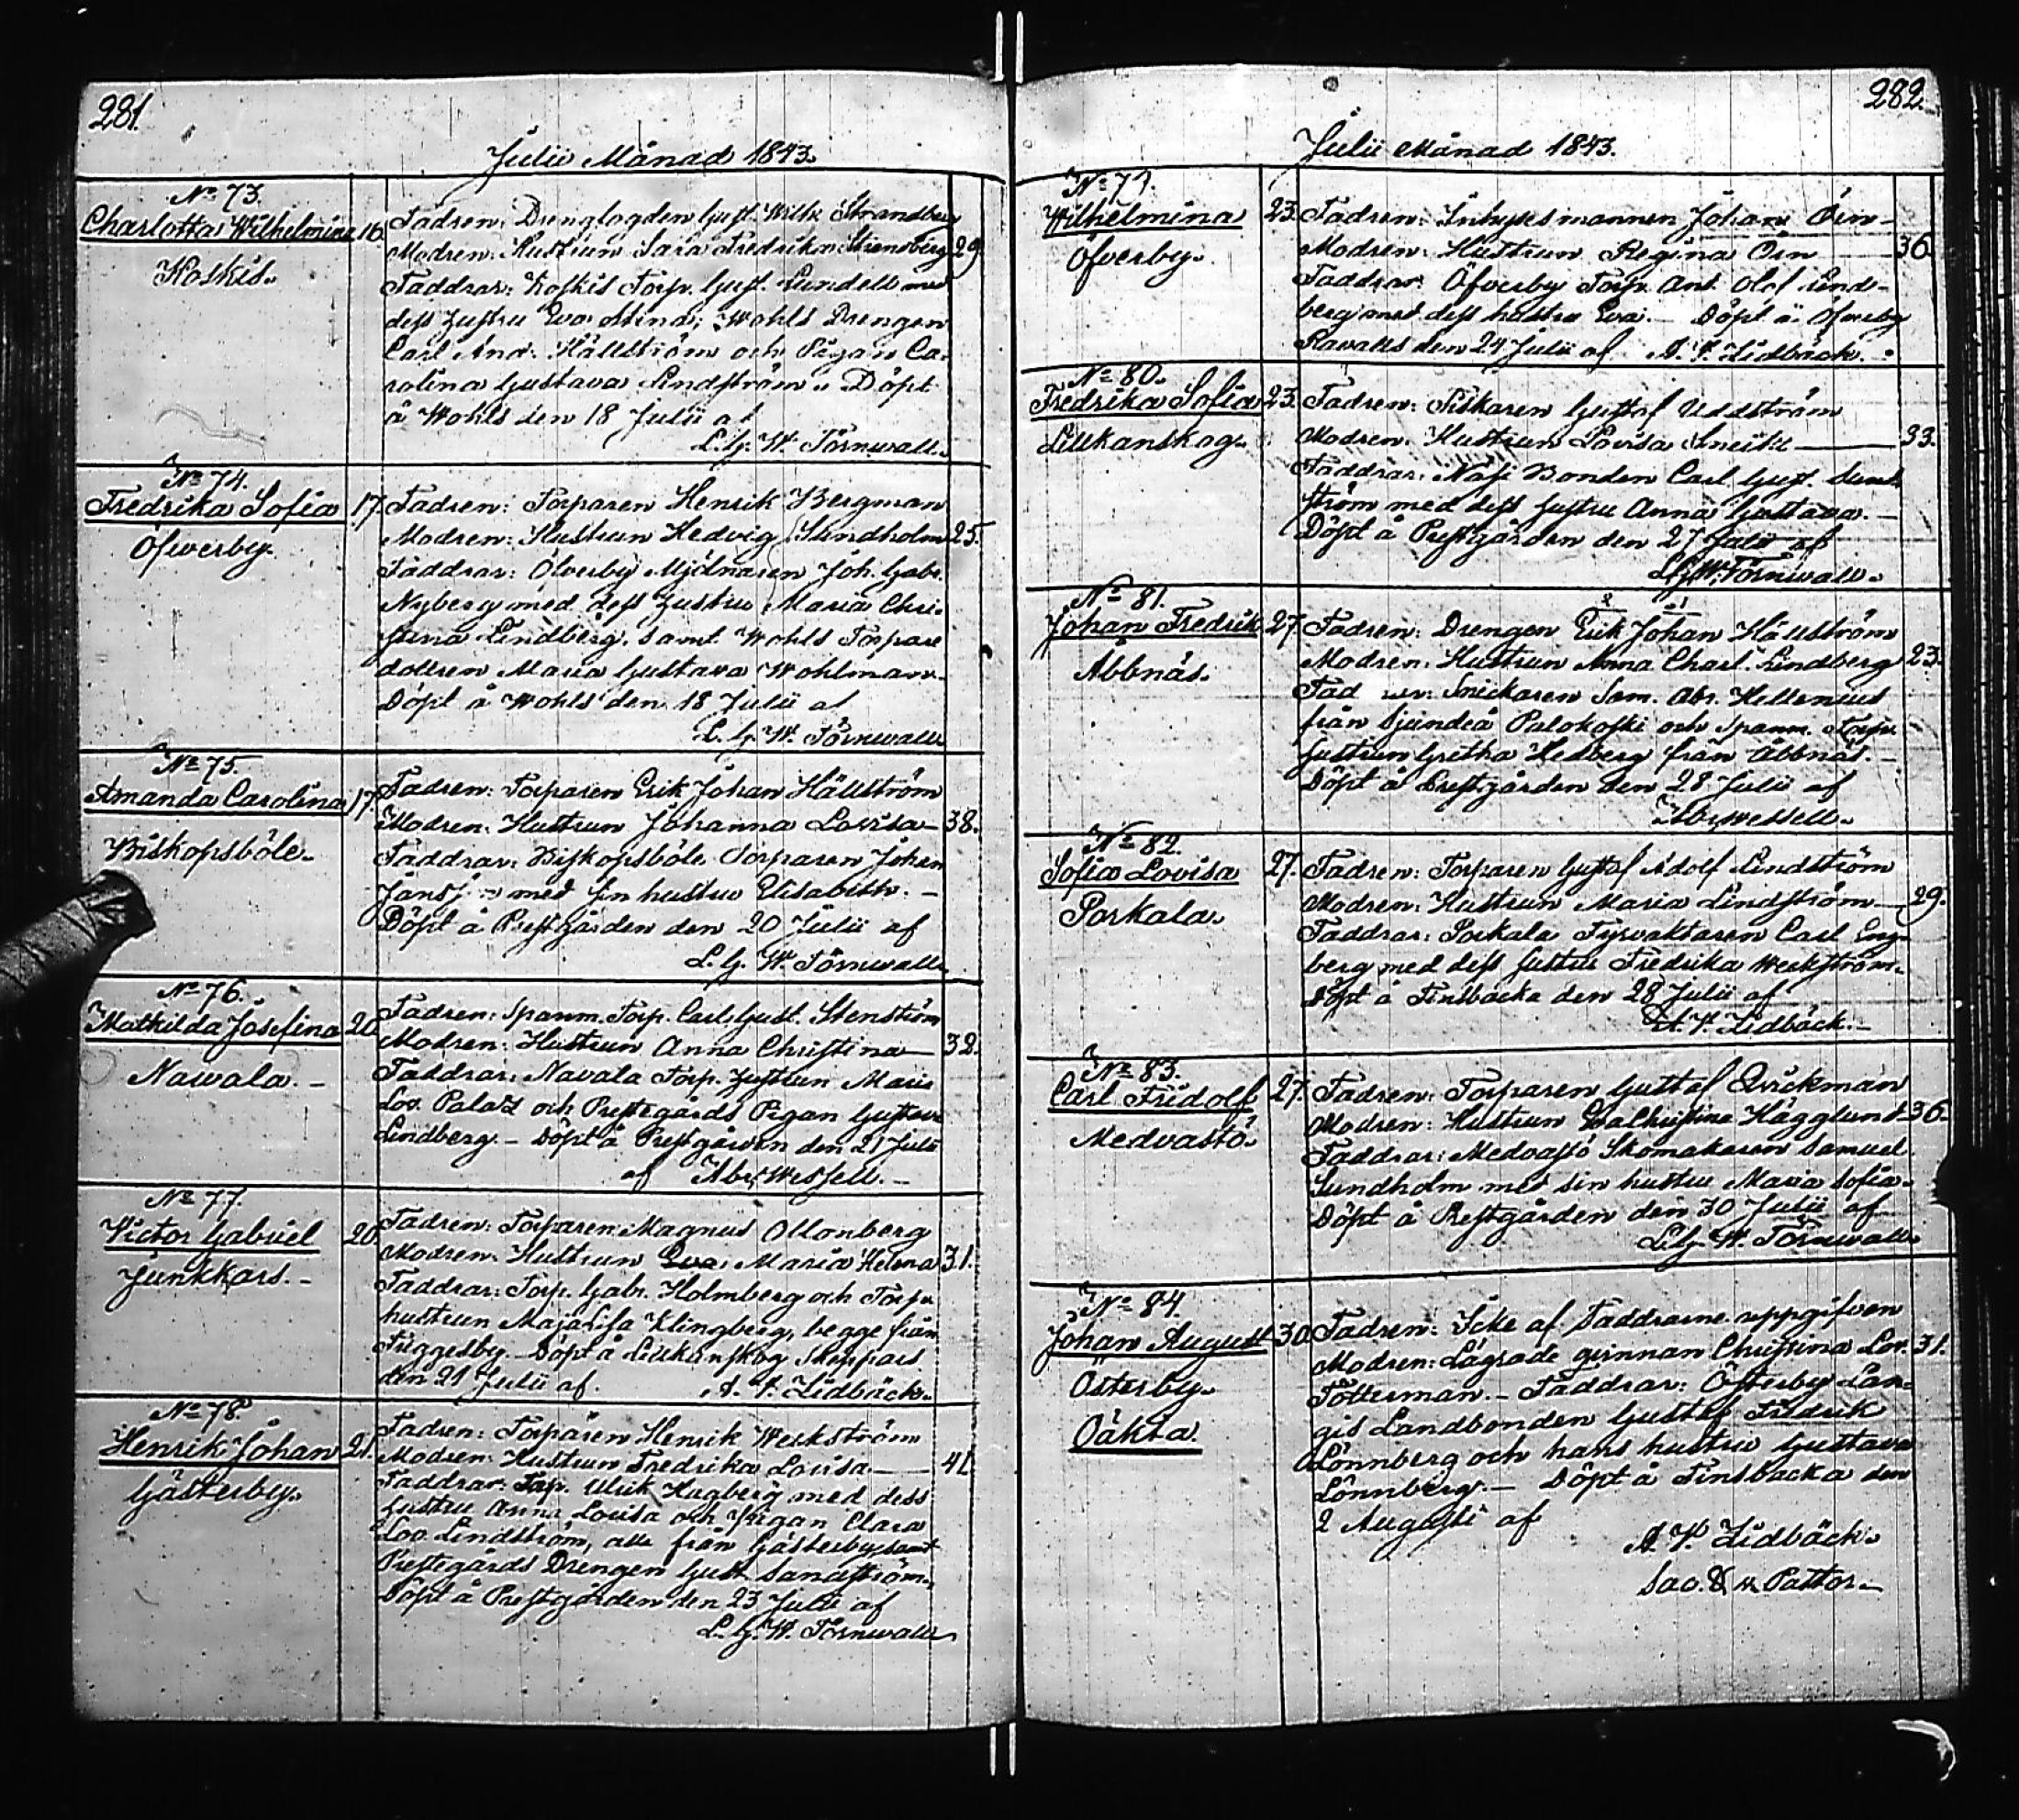 281.
Julii Månad 1843.
No 73.
Charlotta Wilhelmina 16.
Koskis.
Fadren: Drenglogden Gust. Wilh. Strandberg
Modren: Hustrun Sara Fredrika Strandberg 29.
Faddrar: Koskis Torp. Gust. Lundell med
dess hustru Eva Stina; Wohls Drengen
Carl And. Hällström och Pigan Ca-
rolina Gustava Lindström. Döpt
å Wohls den 18 Julii af
L. G. W. Törnwall.
No 74.
Fredrika Sofia 17.
Öfwerby.
Fadren: Torparen Henrik Bergman
Modren: Hustrun Hedvig Sundholm 25.
Faddrar: Öfverby Mjölnaren Joh. Gabr.
Nyberg med dess hustru Maria Chri-
stina Lindberg, samt Wohls Torpare
dottren Maria Gustava Wohlman.
Döpt å Wohls den 18 Julii af
L. G. W. Törnwall
No 75.
Amanda Carolina 17.
Biskopsböle.
Fadren: Torparen Erik Johan Hällström
Modren: Hustrun Johanna Lovisa — 38.
Faddrar: Biskopsböle Torparen Johan
med sin hustru Elisabeth. —
Döpt å Prestgården den 20 Julii af
L. G. W. Törnwall.
No 76.
Mathilda Josefina 20.
Nawala. —
Fadren: Spanm. Torp. Carl Gust. Stenström
Modren: Hustrun Anna Christina — 32.
Faddrar: Navala Torp. hustrun Maria
Lov. och Prestegårds Pigan Gustava
Lindberg. — Döpt å Prestgården den 21 Julii
af Abr. Wessell. —
No 77.
Victor Gabriel 20.
Junkkars. —
Fadren: Torparen Magnus Ollonberg
Modren: Hustrun Eva Maria Helena 31.
Faddrar: Torp. Gabr. Holmberg och Torp.
hustrun Majalisa Klingberg, begge från
Friggesby. — Döpt å Lillkanskog Skeppars
den 21 Julii af. A. V. Lidbäck.
No 78.
Henrik Johan 21.
Gästerby.
Fadren: Torparen Henrik Werkström
Modren: Hustrun Fredrika Lovisa — 41.
Faddrar: Torp. Ulrik Hagberg med dess
hustru Anna Lovisa och Pigan Clara
Lov. Lindström, alla från Gästerby samt
Prestegårds Drengen Gust. Sandström.
Döpt å Prestgården den 23 Julii af
L. G. W. Törnwall
282.
Julii Månad 1843.
No 79.
Wilhelmina 23.
Öfverby.
Fadren: Inhysesmannen Johan Örn —
Modren: Hustrun Regina Örn — 36.
Faddrar: Öfverby Torp. Ant. Olof Lind-
berg med dess hustru Eva. — Döpt å Öfverby
den 24 Julii af A. V. Lidbäck.
No 80.
Fredrika Sofia 23.
Lillkanskog.
Fadren: Fiskaren Gustaf Uddström
Modren: Hustrun Lovisa — 33.
Faddrar: Näse Bonden Carl Gust.
ström med dess hustru Anna Gustava. —
Döpt å Prestgården den 27 Julii af
L. G. W. Törnwall.
No 81.
Johan Fredrik 27.
Abbnäs.
2 1
Fadren: Drengen Erik Johan Hällström
Modren: Hustrun Anna Charl. Lindberg 23.
Snickaren Sam. Abr. Hellenius
från Sjundeå Palokoski och Spanm. Torp.
hustrun Gretha Hedberg från Abbnäs. —
Döpt å Prestgården den 28 Julii af
Abr. Wessell.
No 82.
Sofia Lovisa 27.
Porkala.
Fadren: Torparen Gustaf Adolf Lindström
Modren: Hustrun Maria Lindström — 29.
Faddrar: Porkala Fyrvaktaren Carl Eng-
berg med dess hustru Fredrika Werkström.
Döpt å Finsbacka den 28 Julii af
A. V. Lidbäck. —
No 83.
Carl Fridolf 27.
Medvastö.
Fadren: Torparen Gustaf Qvickman
Modren: Hustrun Eva Christina Hägglund 36.
Faddrar: Medvastö Skomakaren Samuel
Sundholm med sin hustru Maria Sofia.
Döpt å Prestgården den 30 Julii af
L. G. W. Törnwall.
No 84.
Johan August 30.
Österby.
Oäkta.
Fadren: Icke af Faddrarne uppgifven
Modren: Lägrade qvinnan Christina Lov. 31.
Totterman. — Faddrar: Österby Lån-
gis Landbonden Gustaf Fredrik
Lönnberg och hans hustru Gustava
Lönnberg. — Döpt å Finsbacka den
2 Augusti af
A. V. Lidbäck.
Sac. & v. Pastor. —